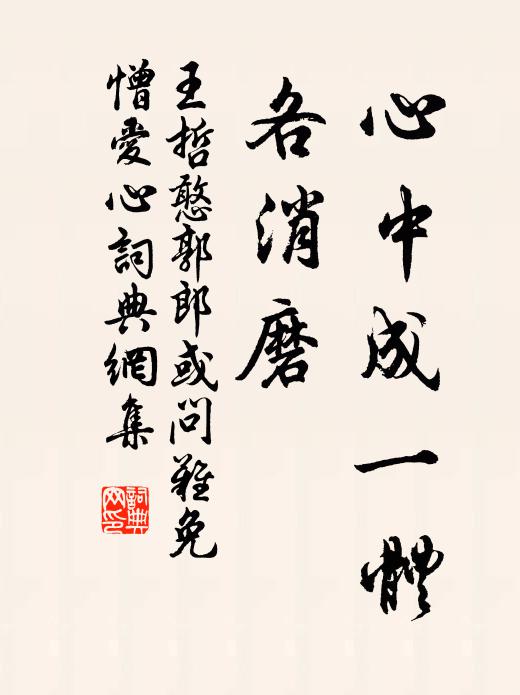 心中成一體
各消磨
王哲憨郭郎或問難免
憎愛心詞典網集
詞典
网印